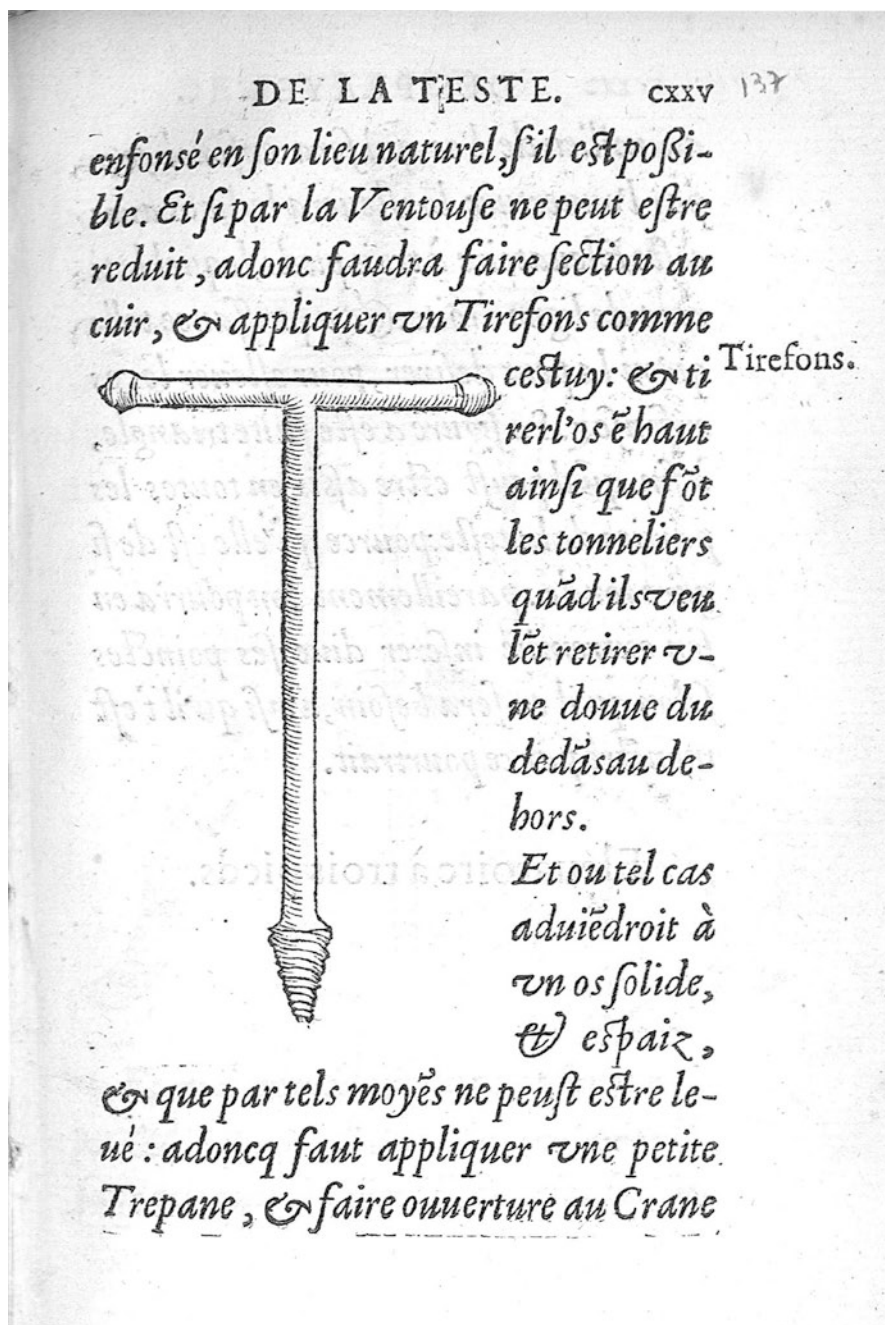 DE LA TESTE. CXXV 137
enfonsé en ſon lieu naturel, ſ'il eſt poßi-
ble. Et ſi par la Ventouſe ne peut eſtre
reduit, adonc faudra faire ſection au
cuir, & appliquer vn Tirefons comme
ceſtuy: & ti
Tirefons.
rer l'os ē haut
ainſi que fōt
les tonneliers
quād ils veu
lēt retirer v-
ne douue du
dedās au de-
hors.
Et ou tel cas
aduiēdroit à
vn os ſolide,
& eſpaiz,
& que par tels moyēs ne peuſt eſtre le-
ué: adoncq faut appliquer vne petite
Trepane, & faire ouuerture au Crane